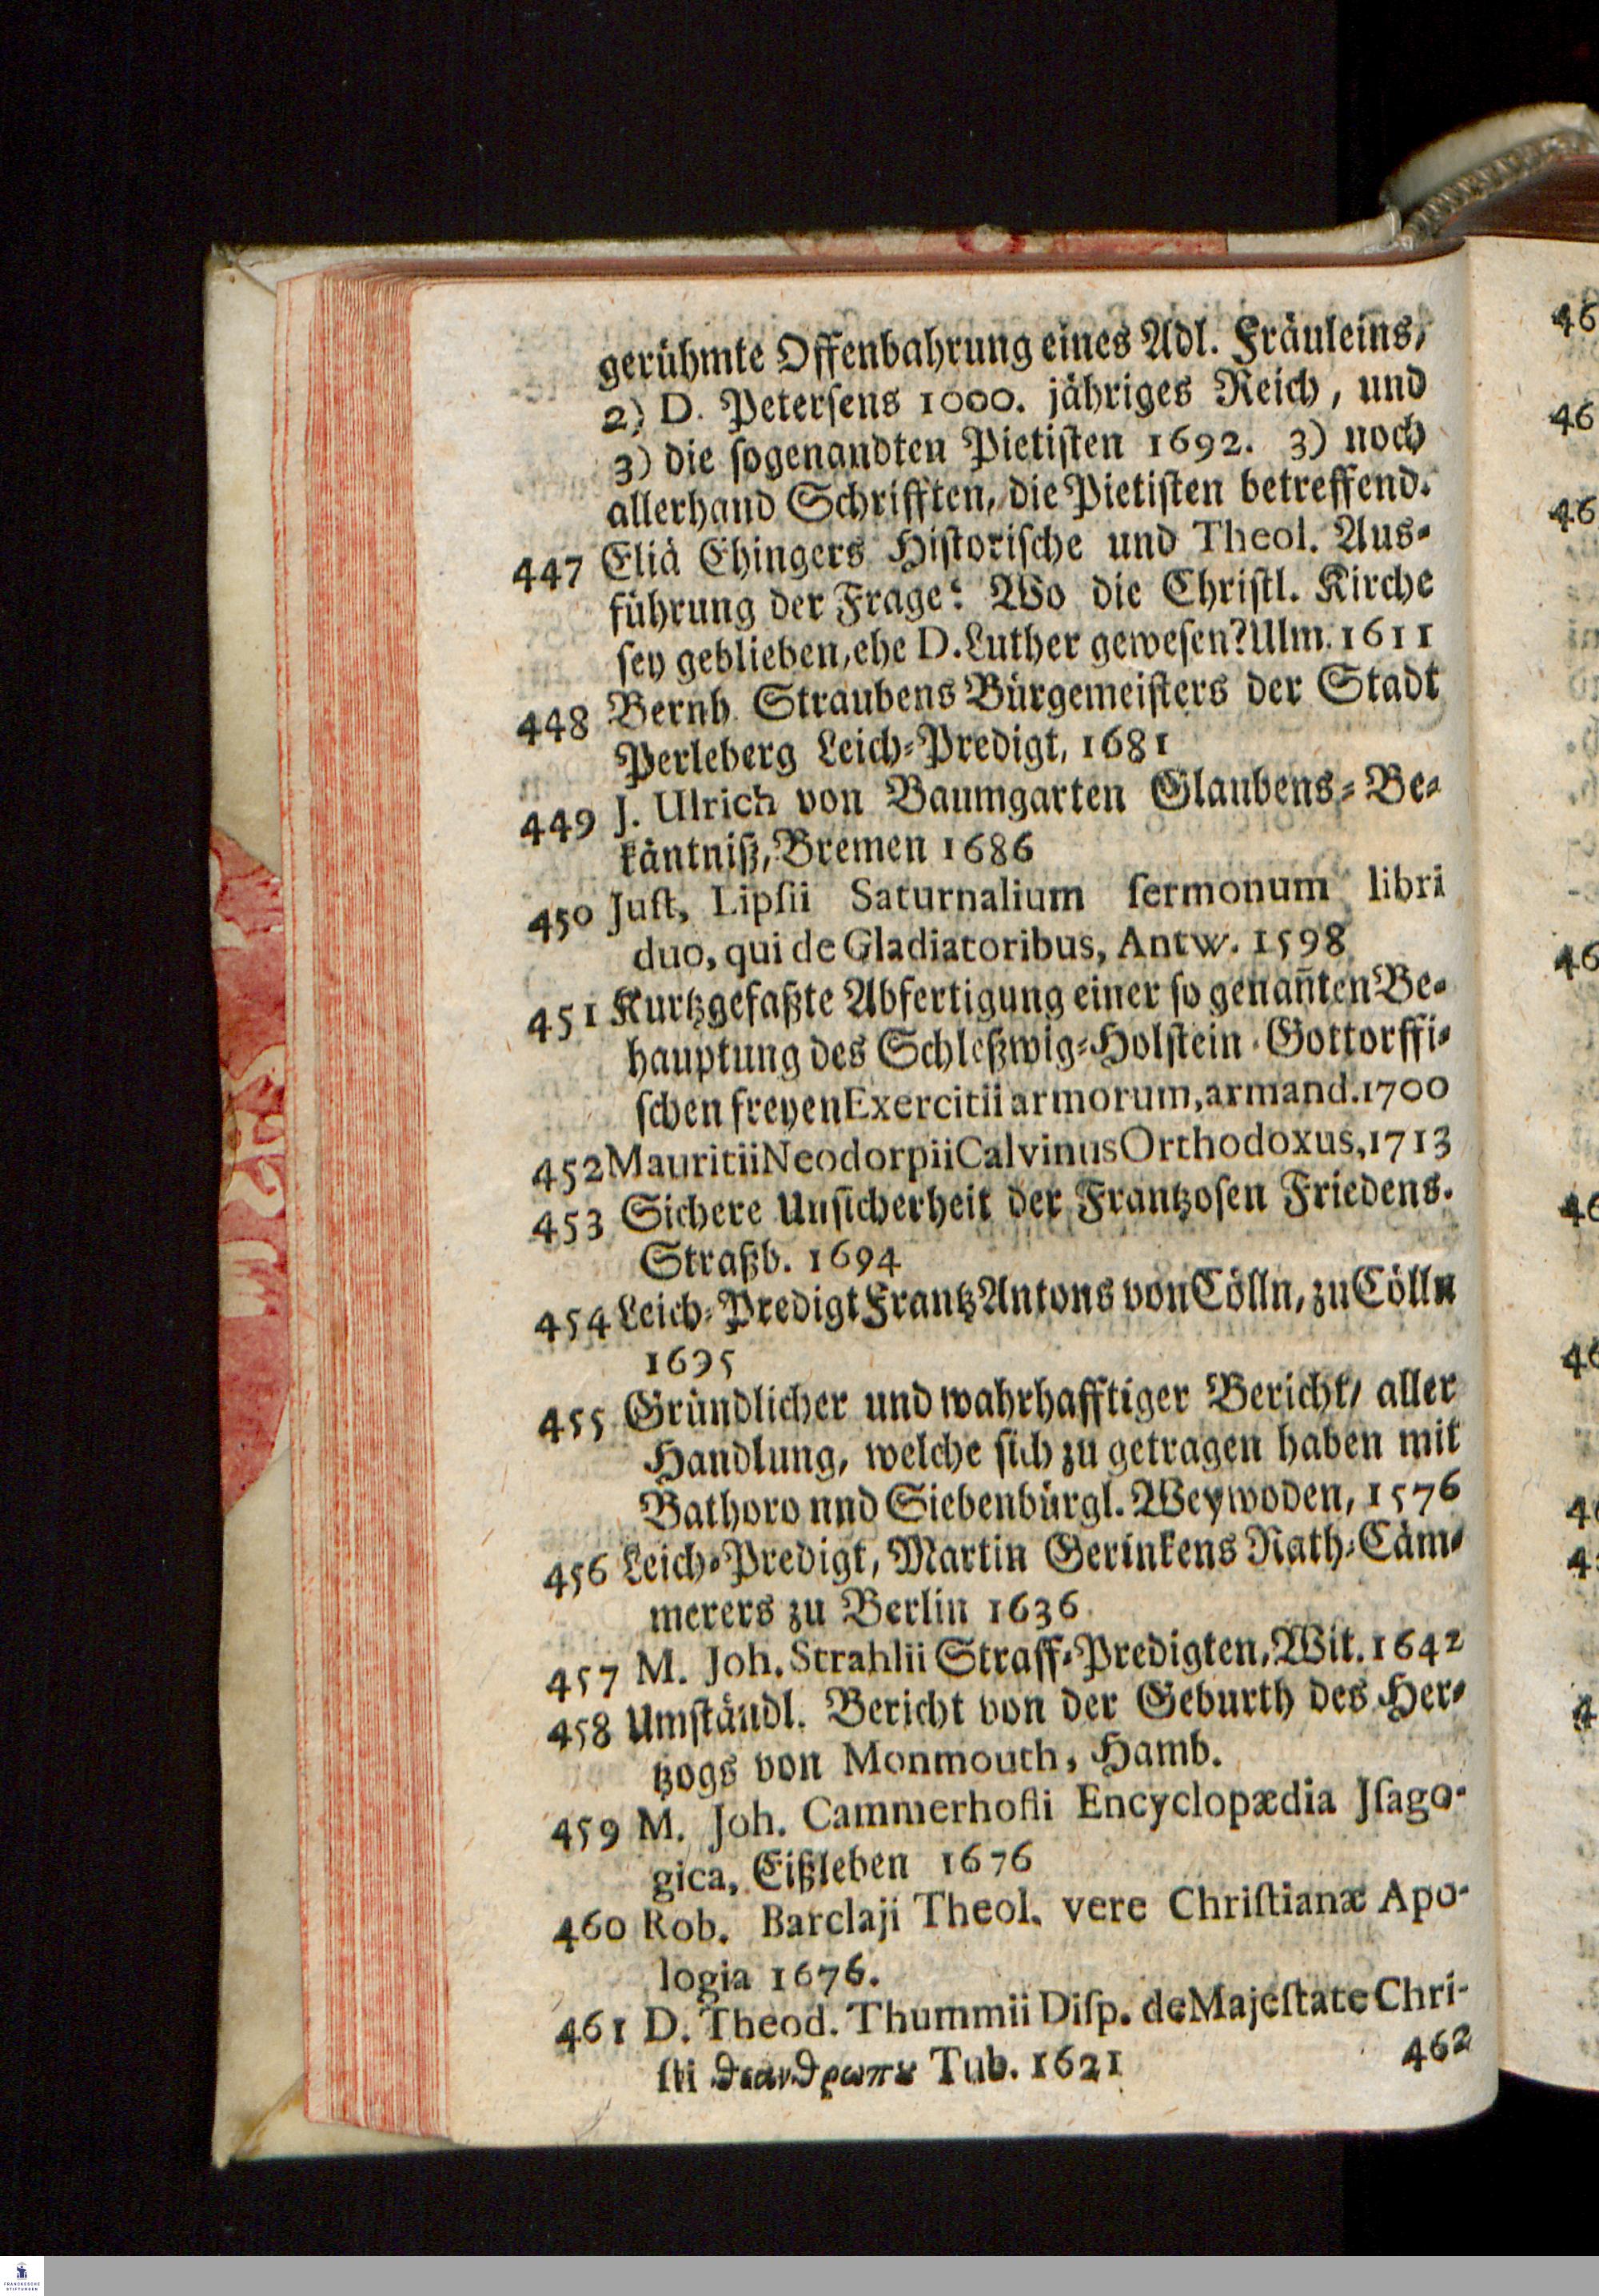 gerühmte Offenbahrung eines Adl. Fräuleins,
2) D. Petersens 1000. jähriges Reich, und
3) die sogenandten Pietisten 1692. 3) noch
allerhand Schrifften, die Pietisten betreffend.
447 Eliä Ehingers Historische und Theol. Aus-
führung der Frage: Wo die Christl. Kirche
sey geblieben, ehe D. Luther gewesen? Ulm. 1611
448 Bernh. Straubens Bürgemeisters der Stadt
Perleberg Leich-Predigt, 1681
449 J. Ulrich von Baumgarten Glaubens-Be-
käntniß, Bremen 1686
450 Just, Lipsii Saturnalium sermonum libri
duo, qui de Gladiatoribus, Antw. 1598
451 Kurtzgefaßte Abfertigung einer so genañten Be-
hauptung des Schleßwig-Holstein-Gottorffi-
schen freyen Exercitii armorum, armand. 1700
452 Mauritii Neodorpii Calvinus Orthodoxus, 1713
453 Sichere Unsicherheit der Frantzosen Friedens.
Straßb. 1694
454 Leich-Predigt Frantz Antons von Cölln, zu Cölln
1695
455 Gründlicher und wahrhafftiger Bericht, aller
Handlung, welche sich zu getragen haben mit
Bathoro nnd Siebenbürgl. Weywoden, 1576
456 Leich-Predigt, Martin Gerinkens Rath-Cäm-
merers zu Berlin 1636
457 M. Joh. Strahlii Straff-Predigten, Wit. 1642
458 Umständl. Bericht von der Geburth des Her-
tzogs von Monmouth, Hamb.
459 M. Joh. Cammerhofii Encyclopædia Jsago-
gica, Eißleben 1676
460 Rob. Barclaji Theol. vere Christianæ Apo-
logia 1676.
461 D. Theod. Thummii Disp. de Majestate Chri-
sti θεανθρωπȣ Tub. 1621
462
46
46
46
46
46
46
FRANCKESCHE
STIFTUNGEN